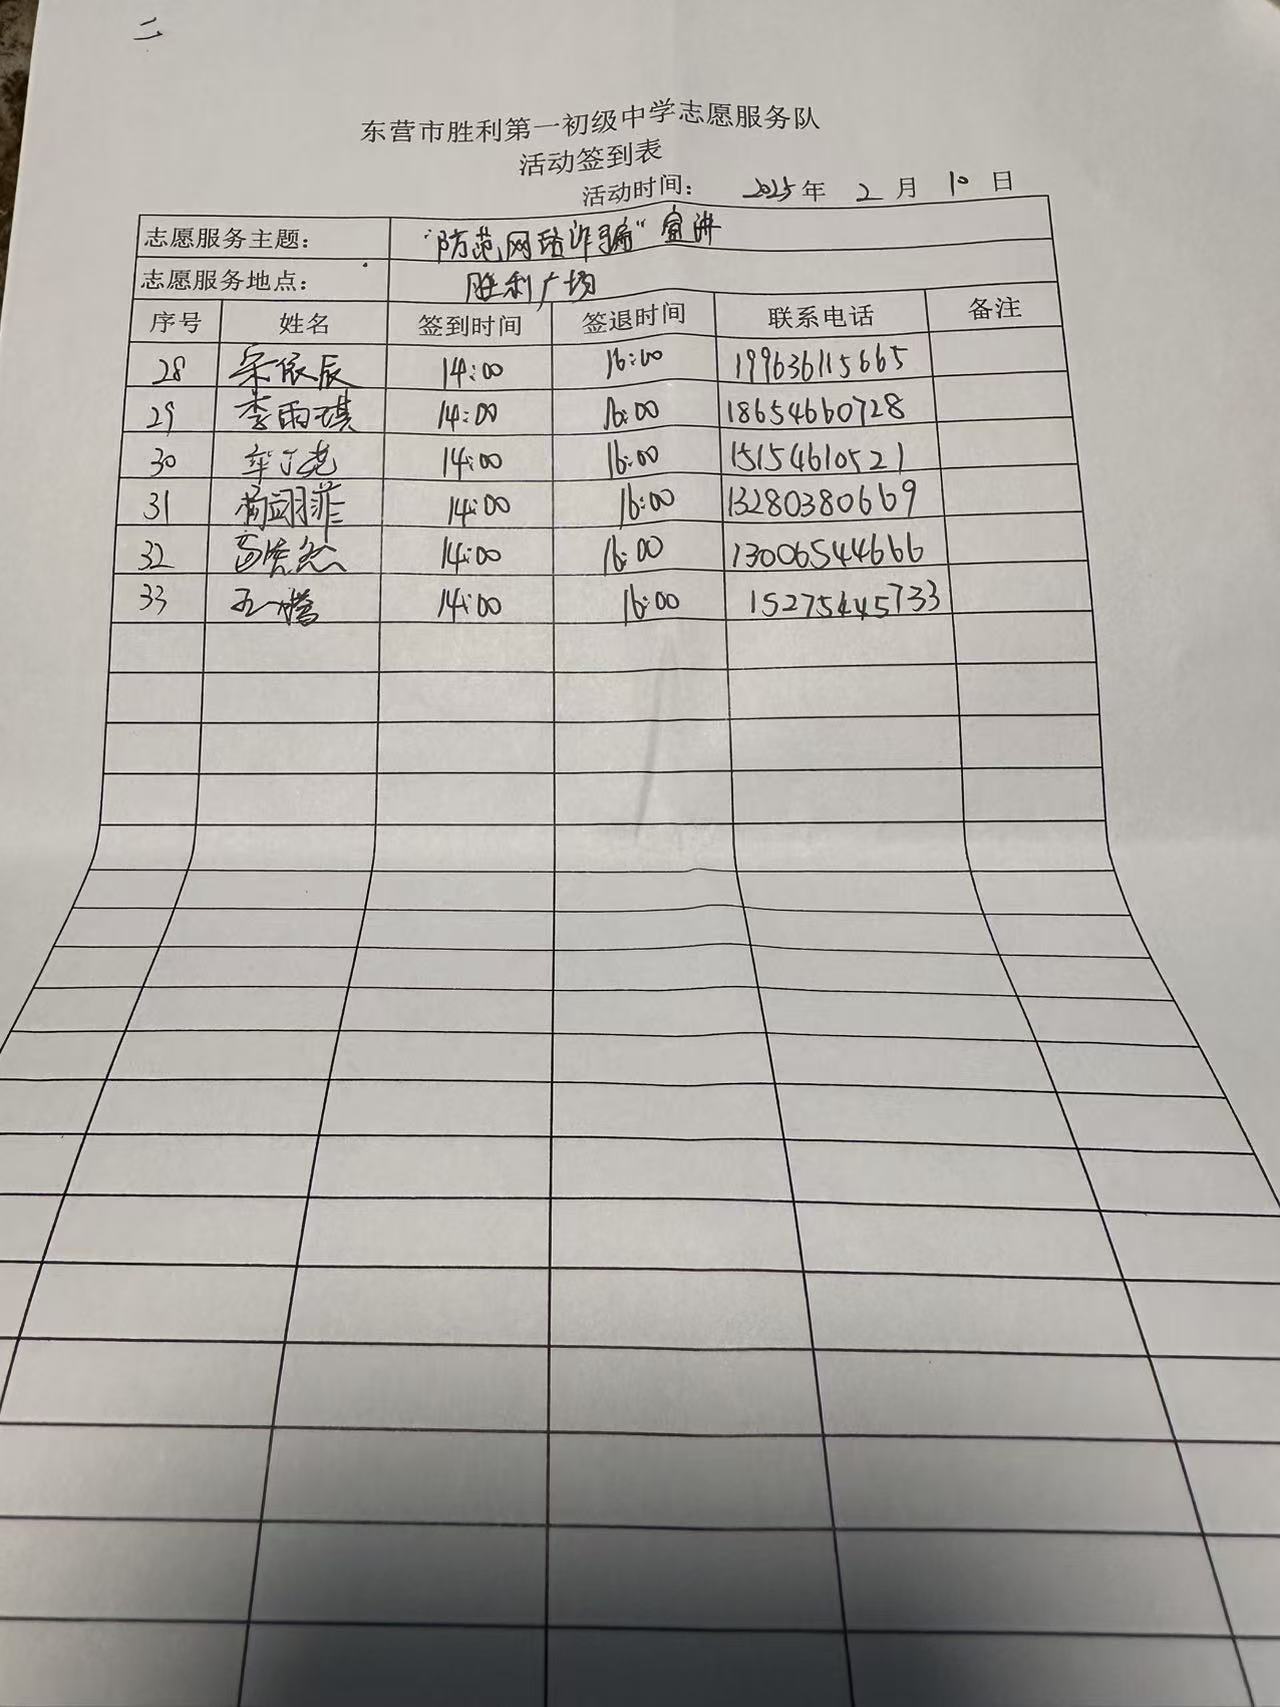 二
东营市胜利第一初级中学志愿服务队
活动签到表
活动时间： 2025年 2 月 10 日
志愿服务主题： “防范网络诈骗”宣讲
志愿服务地点： 胜利广场
序号 姓名 签到时间 签退时间 联系电话 备注
28 宋依辰 14:00 16:00 199636115665
29 李雨琪 14:00 16:00 18654660728
30 14:00 16:00 15154610521
31 14:00 16:00 13280380669
32 14:00 16:00 13006544666
33 14:00 16:00 15275445733